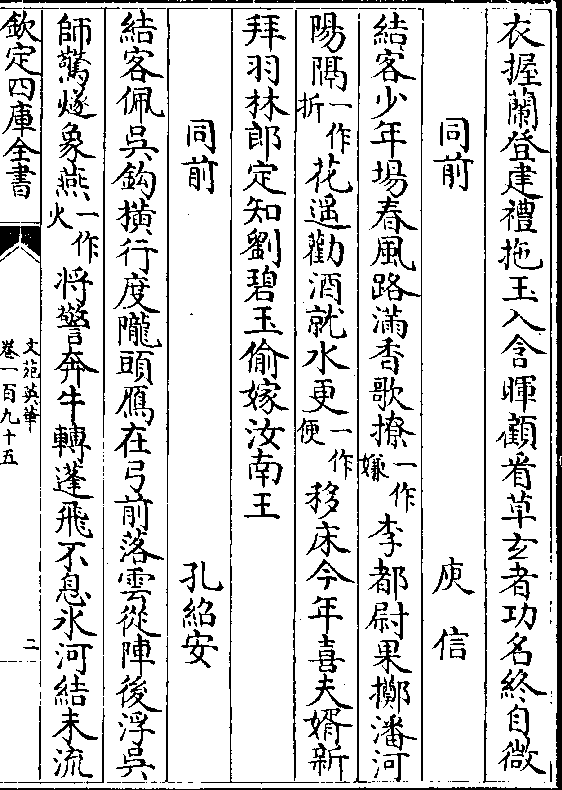 衣握蘭登建禮拖玉入含暉顧看草玄者功名終自微
同前 庾信
結客少年場春風路滿香歌撩一作嫌李都尉果擲潘河
陽隔一作折花遥勸酒就水更一作便移床今年喜夫婿新
拜羽林郎定知劉碧玉偷嫁汝南王
同前 孔紹安
結客佩吳鈎橫行度隴頭鴈在弓前落雲從陣後浮吳
師驚燧象燕一作火將警奔牛轉蓬飛不息氷河結未流
欽定四庫全書
文苑英華
卷一百九十五
二